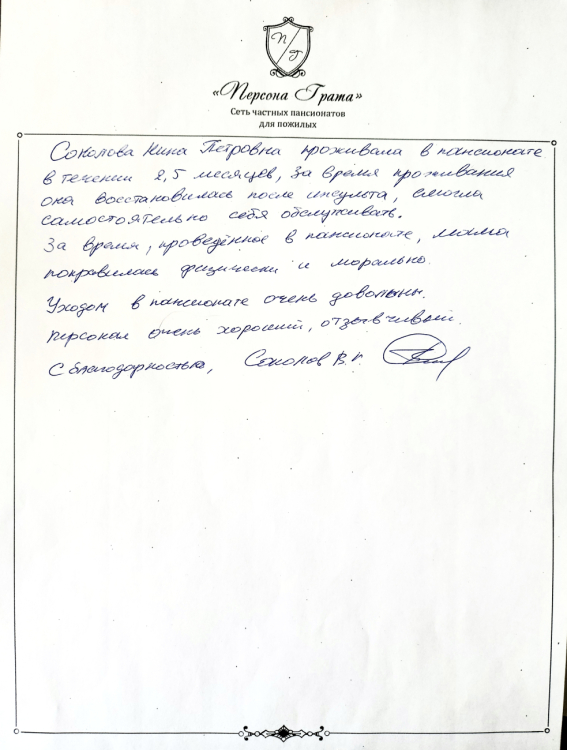 П/Г
«Персона Грата»
Сеть частных пансионатов
для пожилых
Соколова Нина Петровна проживала в пансионате
в течении 2,5 месяцев, за время проживания
она восстановилась после инсульта, смогла
самостоятельно себя обслуживать.
За время, проведённое в пансионате, мама
поправилась физически и морально.
Уходом в пансионате очень довольны.
Персонал очень хороший, отзывчивый.
С благодарностью, Соколов В.Г.